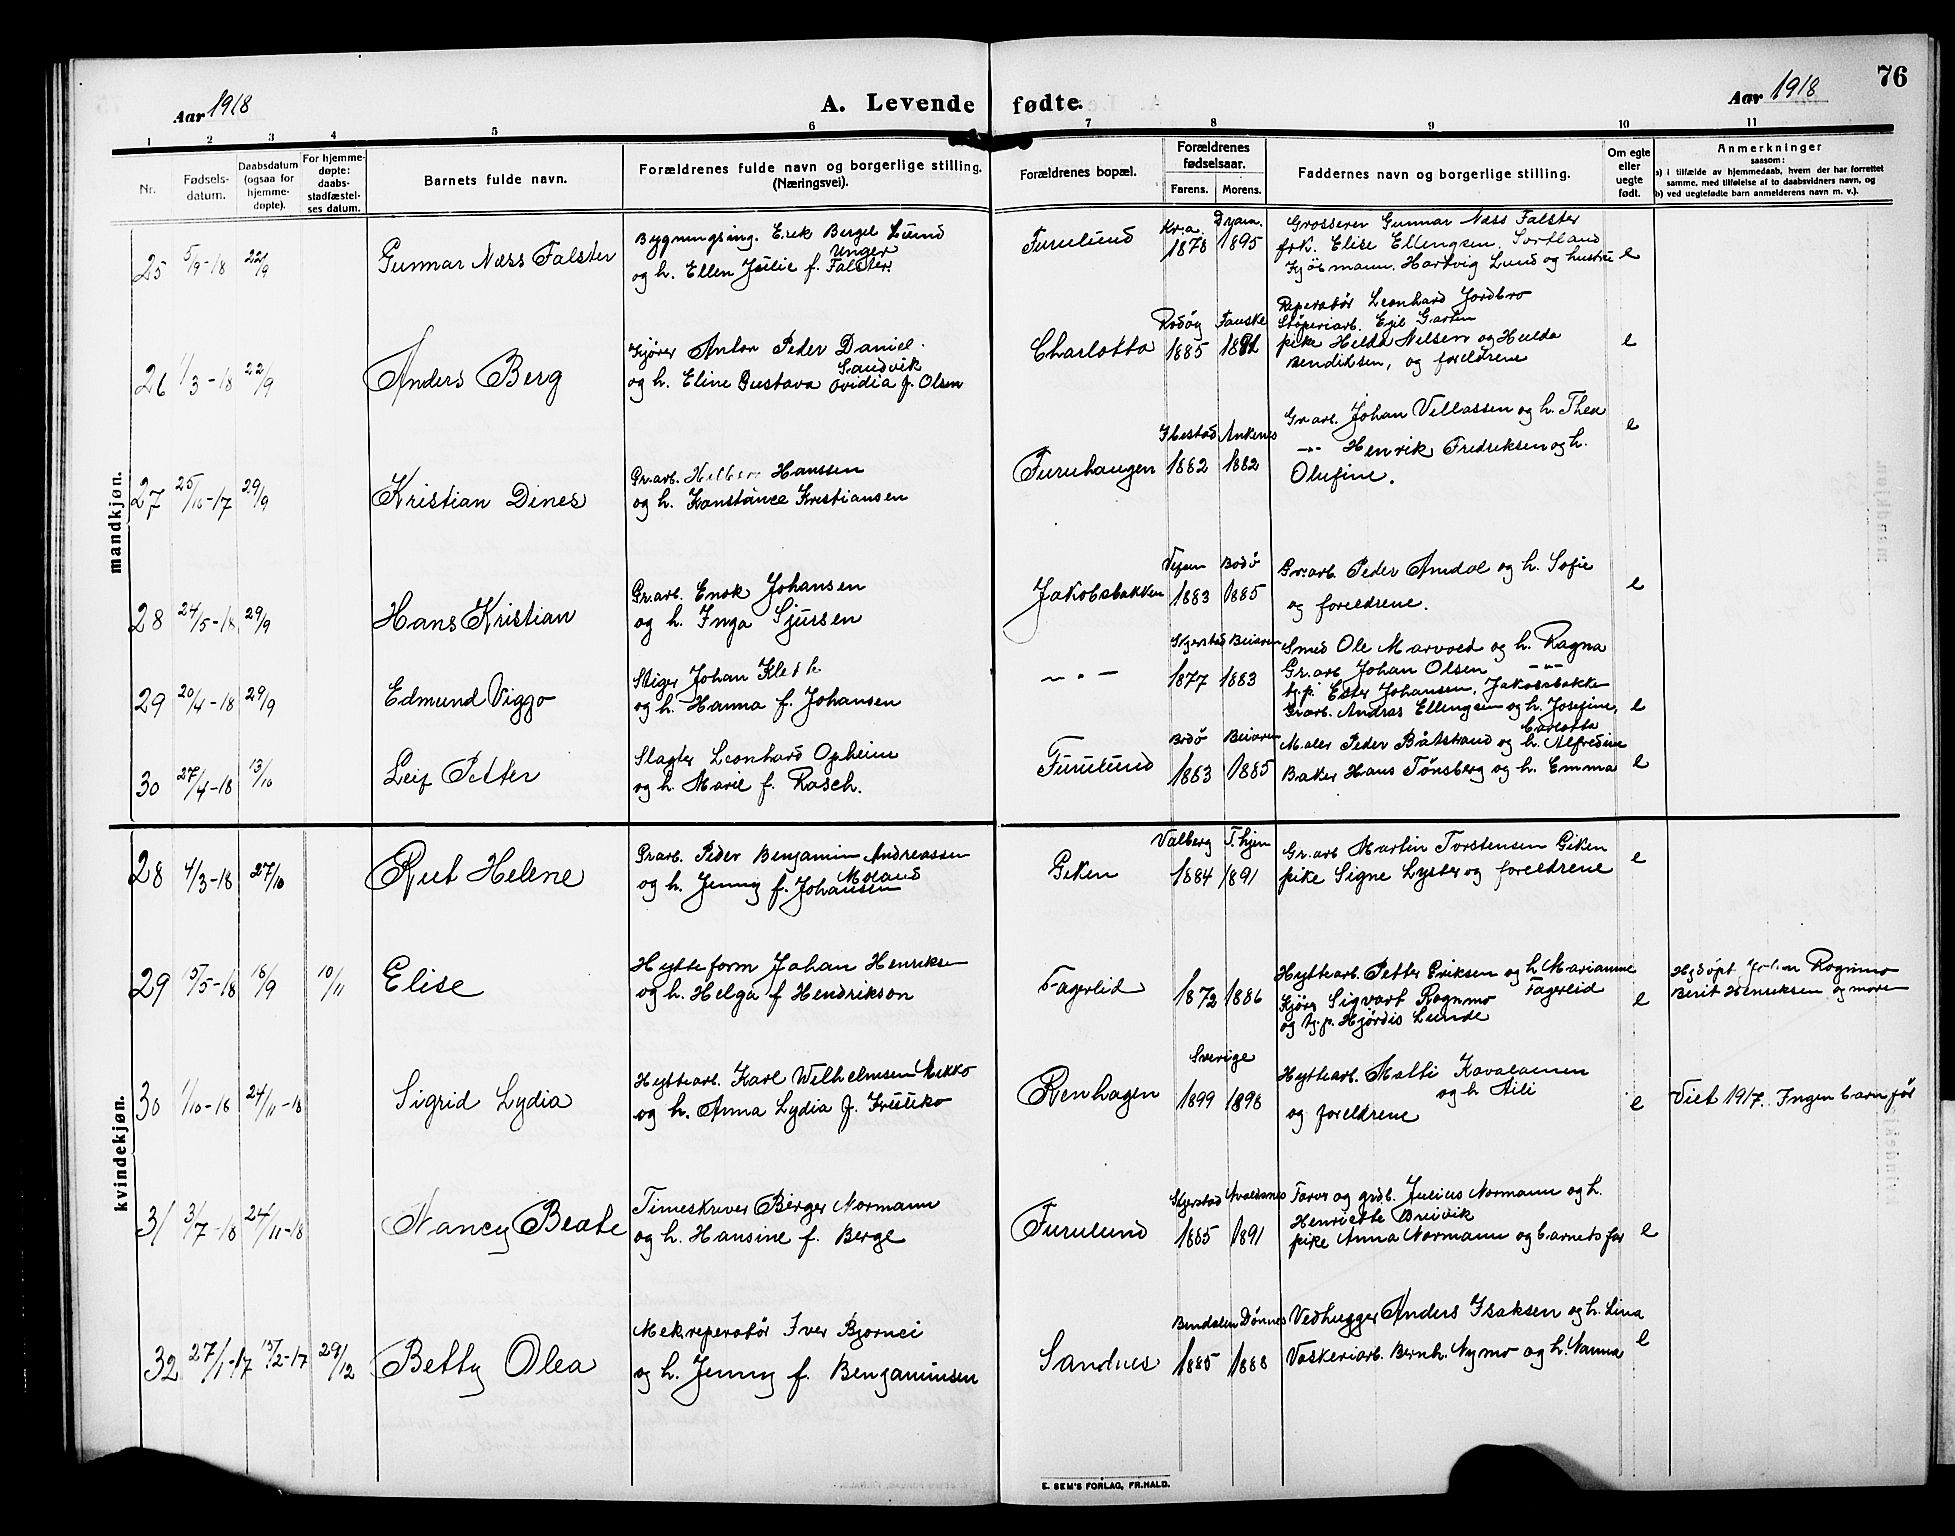 Aar 1918
A. Levende fødte.
Aar 1918
76
1 2 3 4 5 6 7 8 9 10 11
Nr.
Fødsels-
datum.
Daabsdatum
(ogsaa for
hjemme-
døpte).
For hjemme-
døpte:
daabs-
stadfæstel-
ses datum.
Barnets fulde navn.
Forældrenes fulde navn og borgerlige stilling.
(Næringsvei).
Forældrenes bopæl.
Forældrenes
fødselsaar.
Farens. Morens.
Faddernes navn og borgerlige stilling.
Om egte
eller
uegte
født.
Anmerkninger
saasom:
a) i tilfælde av hjemmedaab, hvem der har forrettet
samme, med tilføielse af to daabsvidners navn, og
b) ved uegtefødte barn anmelderens navn m. v.).
mandkjøn.
25 5/9-18 22/9
Gunnar Næss Falster
Bygningsing. Erik Bergel Lund
Unger
og h. Ellen Julie f. Falster
Furulund
Kr.a. Dram.
1878 1895
Grosserer Gunnar Næss Falster
frk. Elise Ellengsen. Sortland
Kjøbmann. Hartvig Lund og hustru
e
26 1/3-18 22/9
Anders Berg
Kjører Anton Peder Daniel
Sandvik
og h. Eline Gustava Ovidia f. Olsen
Charlotta
Rødøy Fauske
1885 1892
Reperatør Leonhard Jordbro
Støperiarb. Egil Garten
pike Helda Nilsen og Hulda
Bendiksen, og foreldrene
e
27 25/10-17 29/9
Kristian Dines
Gr.arb. Hilbert Hanssen
og h. Konstance Kristiansen
Furuhaugen
Ibestad Ankenes
1882 1882
Gr.arb. Johan Villassen og h. Thea
-"- Henrik Fredriksen og h.
Olufine.
e
28 24/5-18 29/9
Hans Kristian
Gr.arb. Enok Johansen
og h. Inga Sjursen
Jakobsbakken
Vefsen Bodø
1883 1885
Gr.arb. Peder Amdal og h. Sofie
og foreldrene.
e
29 20/4-18 29/9
Edmund Viggo
Stiger Johan
og h. Hanna f. Johansen
-"-
Skjerstad Beiaren
1877 1883
Smed Ole Marvoed og h. Ragna
Gr.arb. Johan Olsen -"-
tj.p. Ester Johansen, Jakobsbakke
Gr.arb. Andras Ellengsen og h. Josefine,
e
30 27/4-18 13/10
Leif Petter
Slagter Leonhard Opheim
og h. Marie f. Rasch.
Furulund
Bodø Beiaren
1883 1885
Carlotta
Maler Peder Båtstrand og h. Alfredine
Baker Hans Tønsberg og h. Emma
e
kvindekjøn.
28 4/3-18 27/10
Rut Helene
Gr.arb. Peder Benjamin Andreassen
Moland
og h. Jenny f. Johansen
Giken
Valberg T.hjem
1884 1891
Gr.arb Martin Torstensen Giken
pike Signe Lyster og foreldrene
e
29 15/5-18 18/9 10/11
Elise
Hytteform Johan Henriksen
og h. Helga f Hendrikson
Fagerlid
1872 1886
Hyttearb. Petter Eriksen og h. Marianne
Fagerlid
Kjørg Sigvart Rognmo
og tj.p. Hjørdis Lunde
e
Hj.døpt Rognmo
Berit Henriksen og moren
30 1/10-18 24/11-18
Sigrid Lydia
Hyttearb. Karl Wilhelmsen Mikko
og h. Anna Lydia f. Frikko
Renhagen
Sverige
1899 1898
Hyttearb. Malti Kavalainen
og h Aili
og foreldrene
e
Viet 1917. Ingen barn før
31 3/7-18 24/11-18
Nancy Beate
Timeskriver Birger Normann
og h. Hansine f. Berge
Furulund
Skjerstad Avaldsnes
1885 1891
Farver og grdb. Julius Normann og h.
Henriette Breivik
pike Anna Normann og barnets far
e
32 27/1-17 13/2-17 29/12
Betty Olea
Mek.reperatør Iver Bjørnei
og h. Jenny f. Benjaminsen
Sandnes
Bindalen Dønnes
1885 1888
Vedhugger Anders Isaksen og h. Lina
Vaskeriarb. Bernh. Nymo og h. Nanna
e
E. SEM'S FORLAG, FR.HALD.